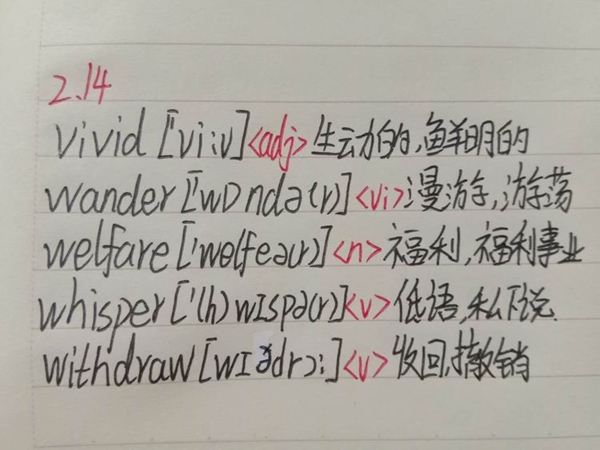 2.14
vivid ['vi:v] <adj> 生动的,鲜明的
wander ['wɒndə(r)] <vi> 漫游,游荡
welfare ['welfeə(r)] <n> 福利,福利事业
whisper ['(h)wɪspə(r)] <v> 低语,私下说
withdraw [wɪðdrɔ:] <v> 收回,撤销